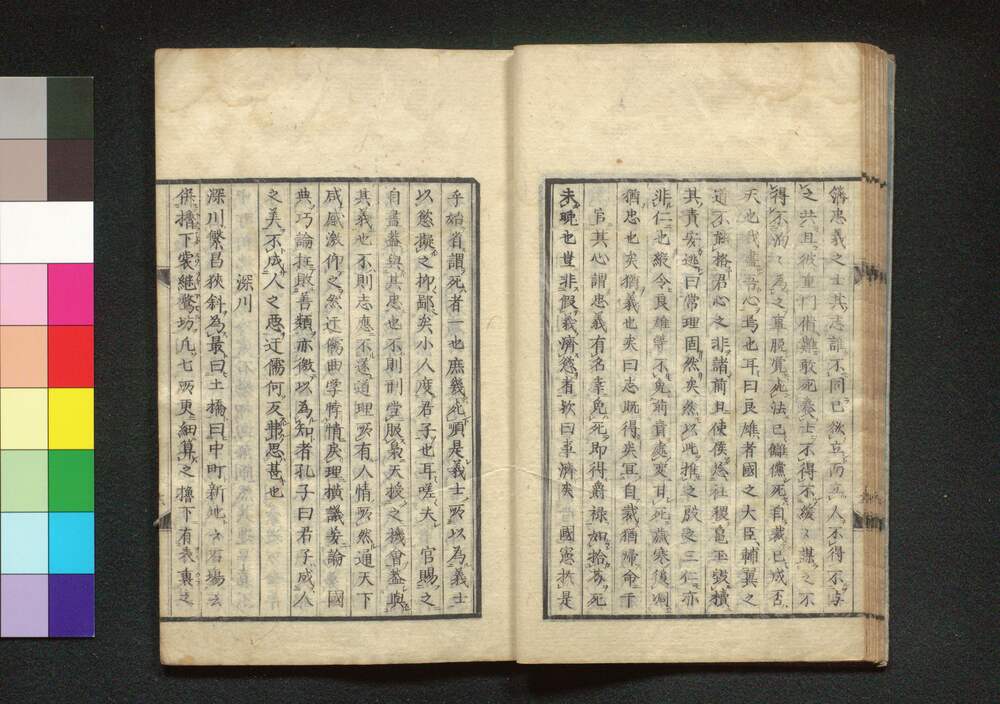 籍忠義之士其志誰不同已欲立而立人不得不与
之共且彼重門備難敢死養士不得不緩々謀之不
得不為之事脱實死法已雖儻死自裁已成否
天也我盡吾心焉也耳曰良雄者國之大臣輔翼之
道不能格君心之非諸前且使侯家社稷亀玉毀櫝
其責安逃曰常理固然矣然以此推之殷之三仁亦
非仁也縦令良雄等不免前責處変甘死歳寒後凋
猶忠也矣猶義也矣曰志既得矣宜自裁猶帰命于
官其心謂忠義有名幸免死即得爵禄如拾芥死
未晩也豈非假義濟慾者歟曰事濟矣 國憲扵是
乎始省謂死者一也庶幾死順是義士所以為義士
以慾擬之抑鄙矣小人度君子也耳嗟夫 官賜之
自盡蓋與其忠也不則刑堂服衆天授之機會蓋與
其義也不則志應不遂道理所有人情所然通天下
咸感激仰之然迂儒曲学悖情戻理横議妄論 國
典巧論抂敗善類亦徼以為知者孔子曰君子成人
之美不成人之悪迂儒何反弗思甚也
深川
深川繁昌狹斜為最曰土橋曰中町新地云石場云
併擼下裳継鷺坊凢七所更細算之擼下有表裏之